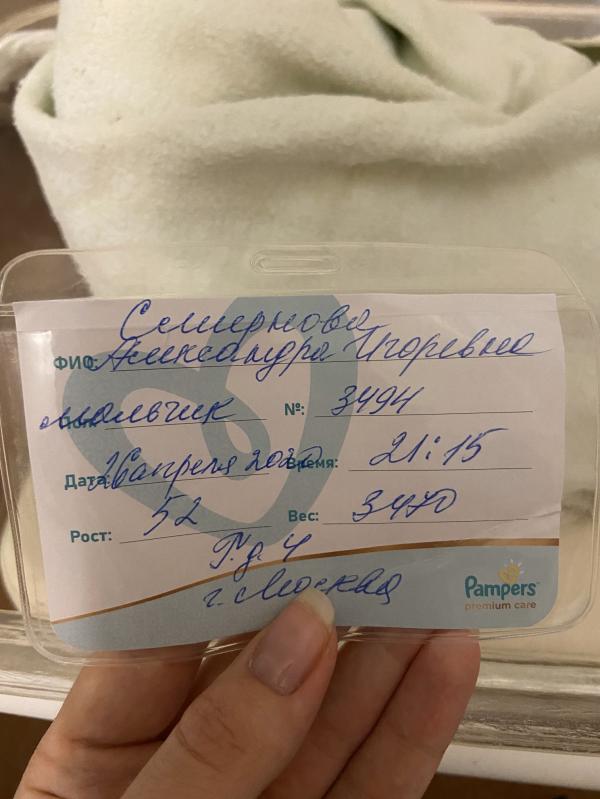 Смирнова
ФИО: Александра Игоревна
мальчик №: 3494
Дата: 26 апреля 2020 Время: 21:15
Рост: 52 Вес: 3470
Р.д. 4
г. Москва
Pampers
premium care